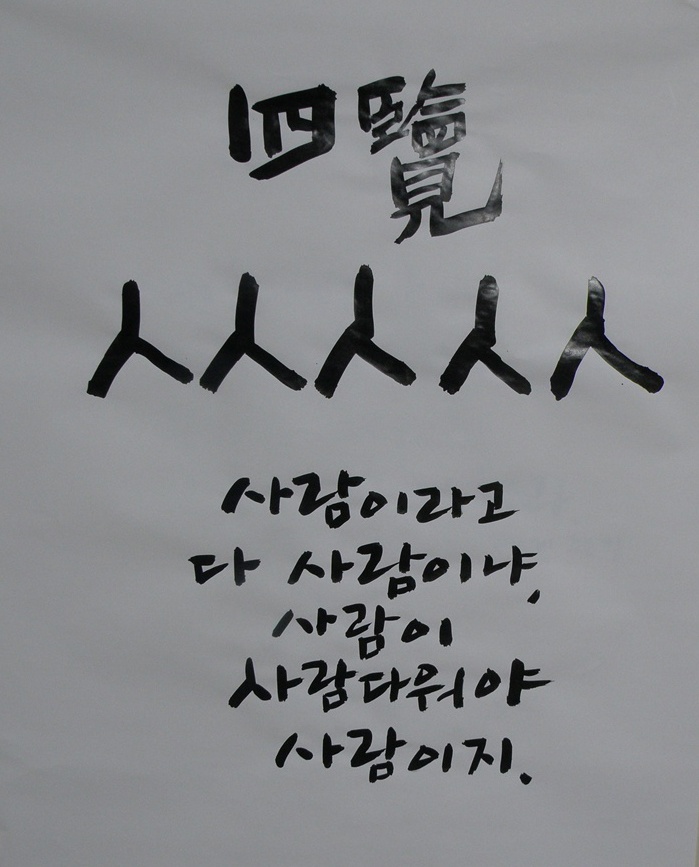 四覽
人人人人人
사람이라고
다 사람이냐,
사람이
사람다워야
사람이지.